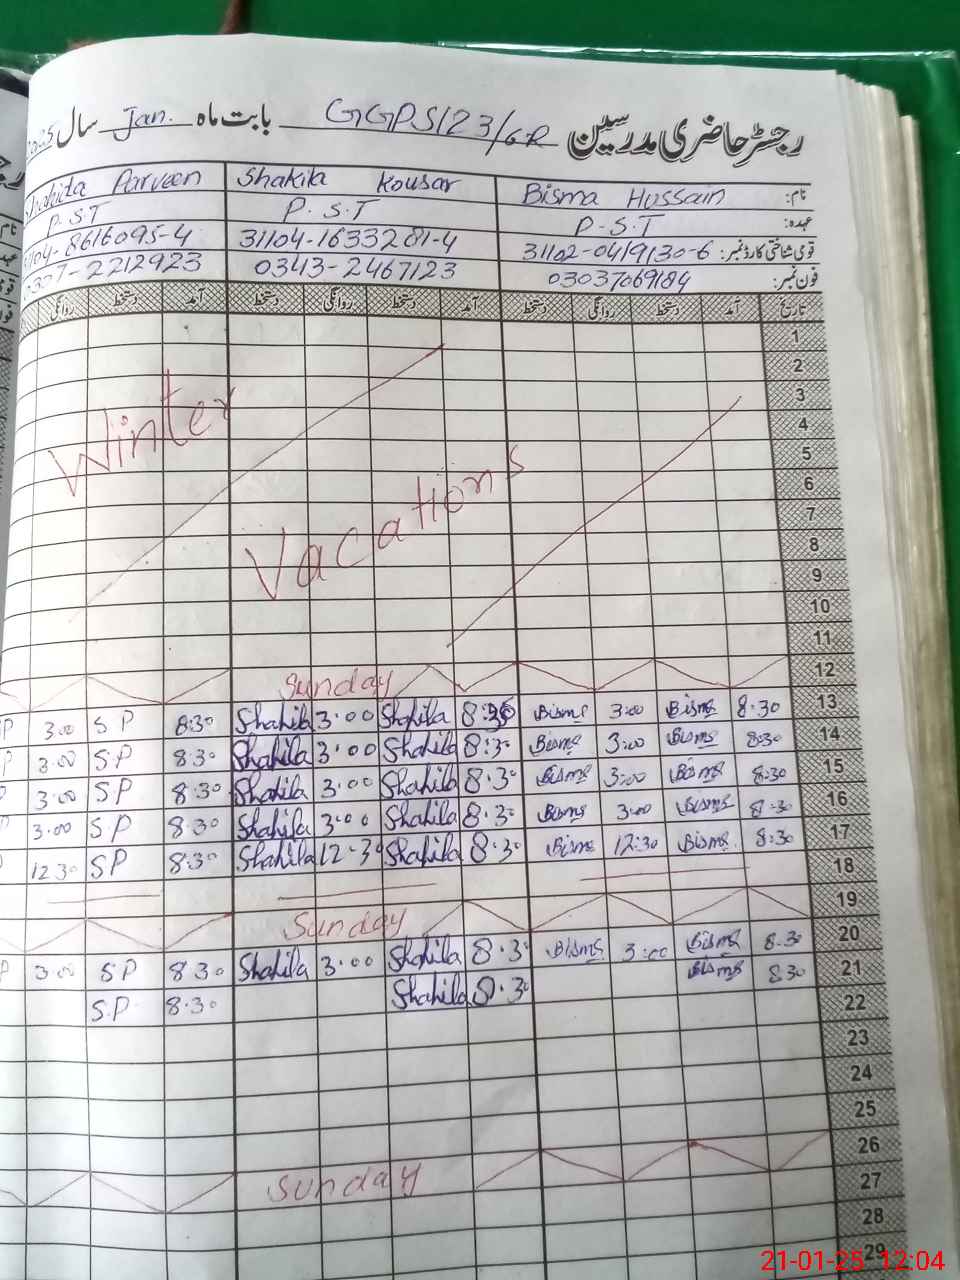 رجسٹر حاضری مدرسین GGPS 123/6R بابت ماہ Jan. سال 2025
نام: Bisma Hussain Shakila Kousar Shahida Parveen
عہدہ: P.S.T P.S.T P.S.T
قومی شناختی کارڈ نمبر: 31102-0419130-6 31104-1633281-4 31104-8616095-4
فون نمبر: 03037069184 0343-2467123 0307-2212923
تاریخ آمد دستخط روانگی دستخط آمد دستخط روانگی دستخط آمد دستخط روانگی
1
2
3
4
5
6
7
8
9
10
11
Winter
Vacations
12 Sunday
13 8.30 Bisma 3:00 Bisma 8:30 Shakila 3.00 Shakila 8:30 SP 3.00
14 8:30 Bisma 3:00 Bisma 8:30 Shakila 3.00 Shakila 8.30 SP 3.00
15 8:30 Bisma 3:00 Bisma 8.30 Shakila 3.00 Shakila 8.30 S.P 3.00
16 8:30 Bisma 3:00 Bisma 8.30 Shakila 3:00 Shakila 8.30 S.P 3.00
17 8:30 Bisma 12:30 Bisma 8.30 Shakila 12.30 Shakila 8:30 SP 12.30
18
19 Sunday
20 8.30 Bisma 3:00 Bisma 8.30 Shakila 3.00 Shakila 8.30 SP 3.00
21 8.30 Bisma 8.30 Shakila 8.30 S.P
22
23
24
25
26 Sunday
27
28
29
21-01-25 12:04